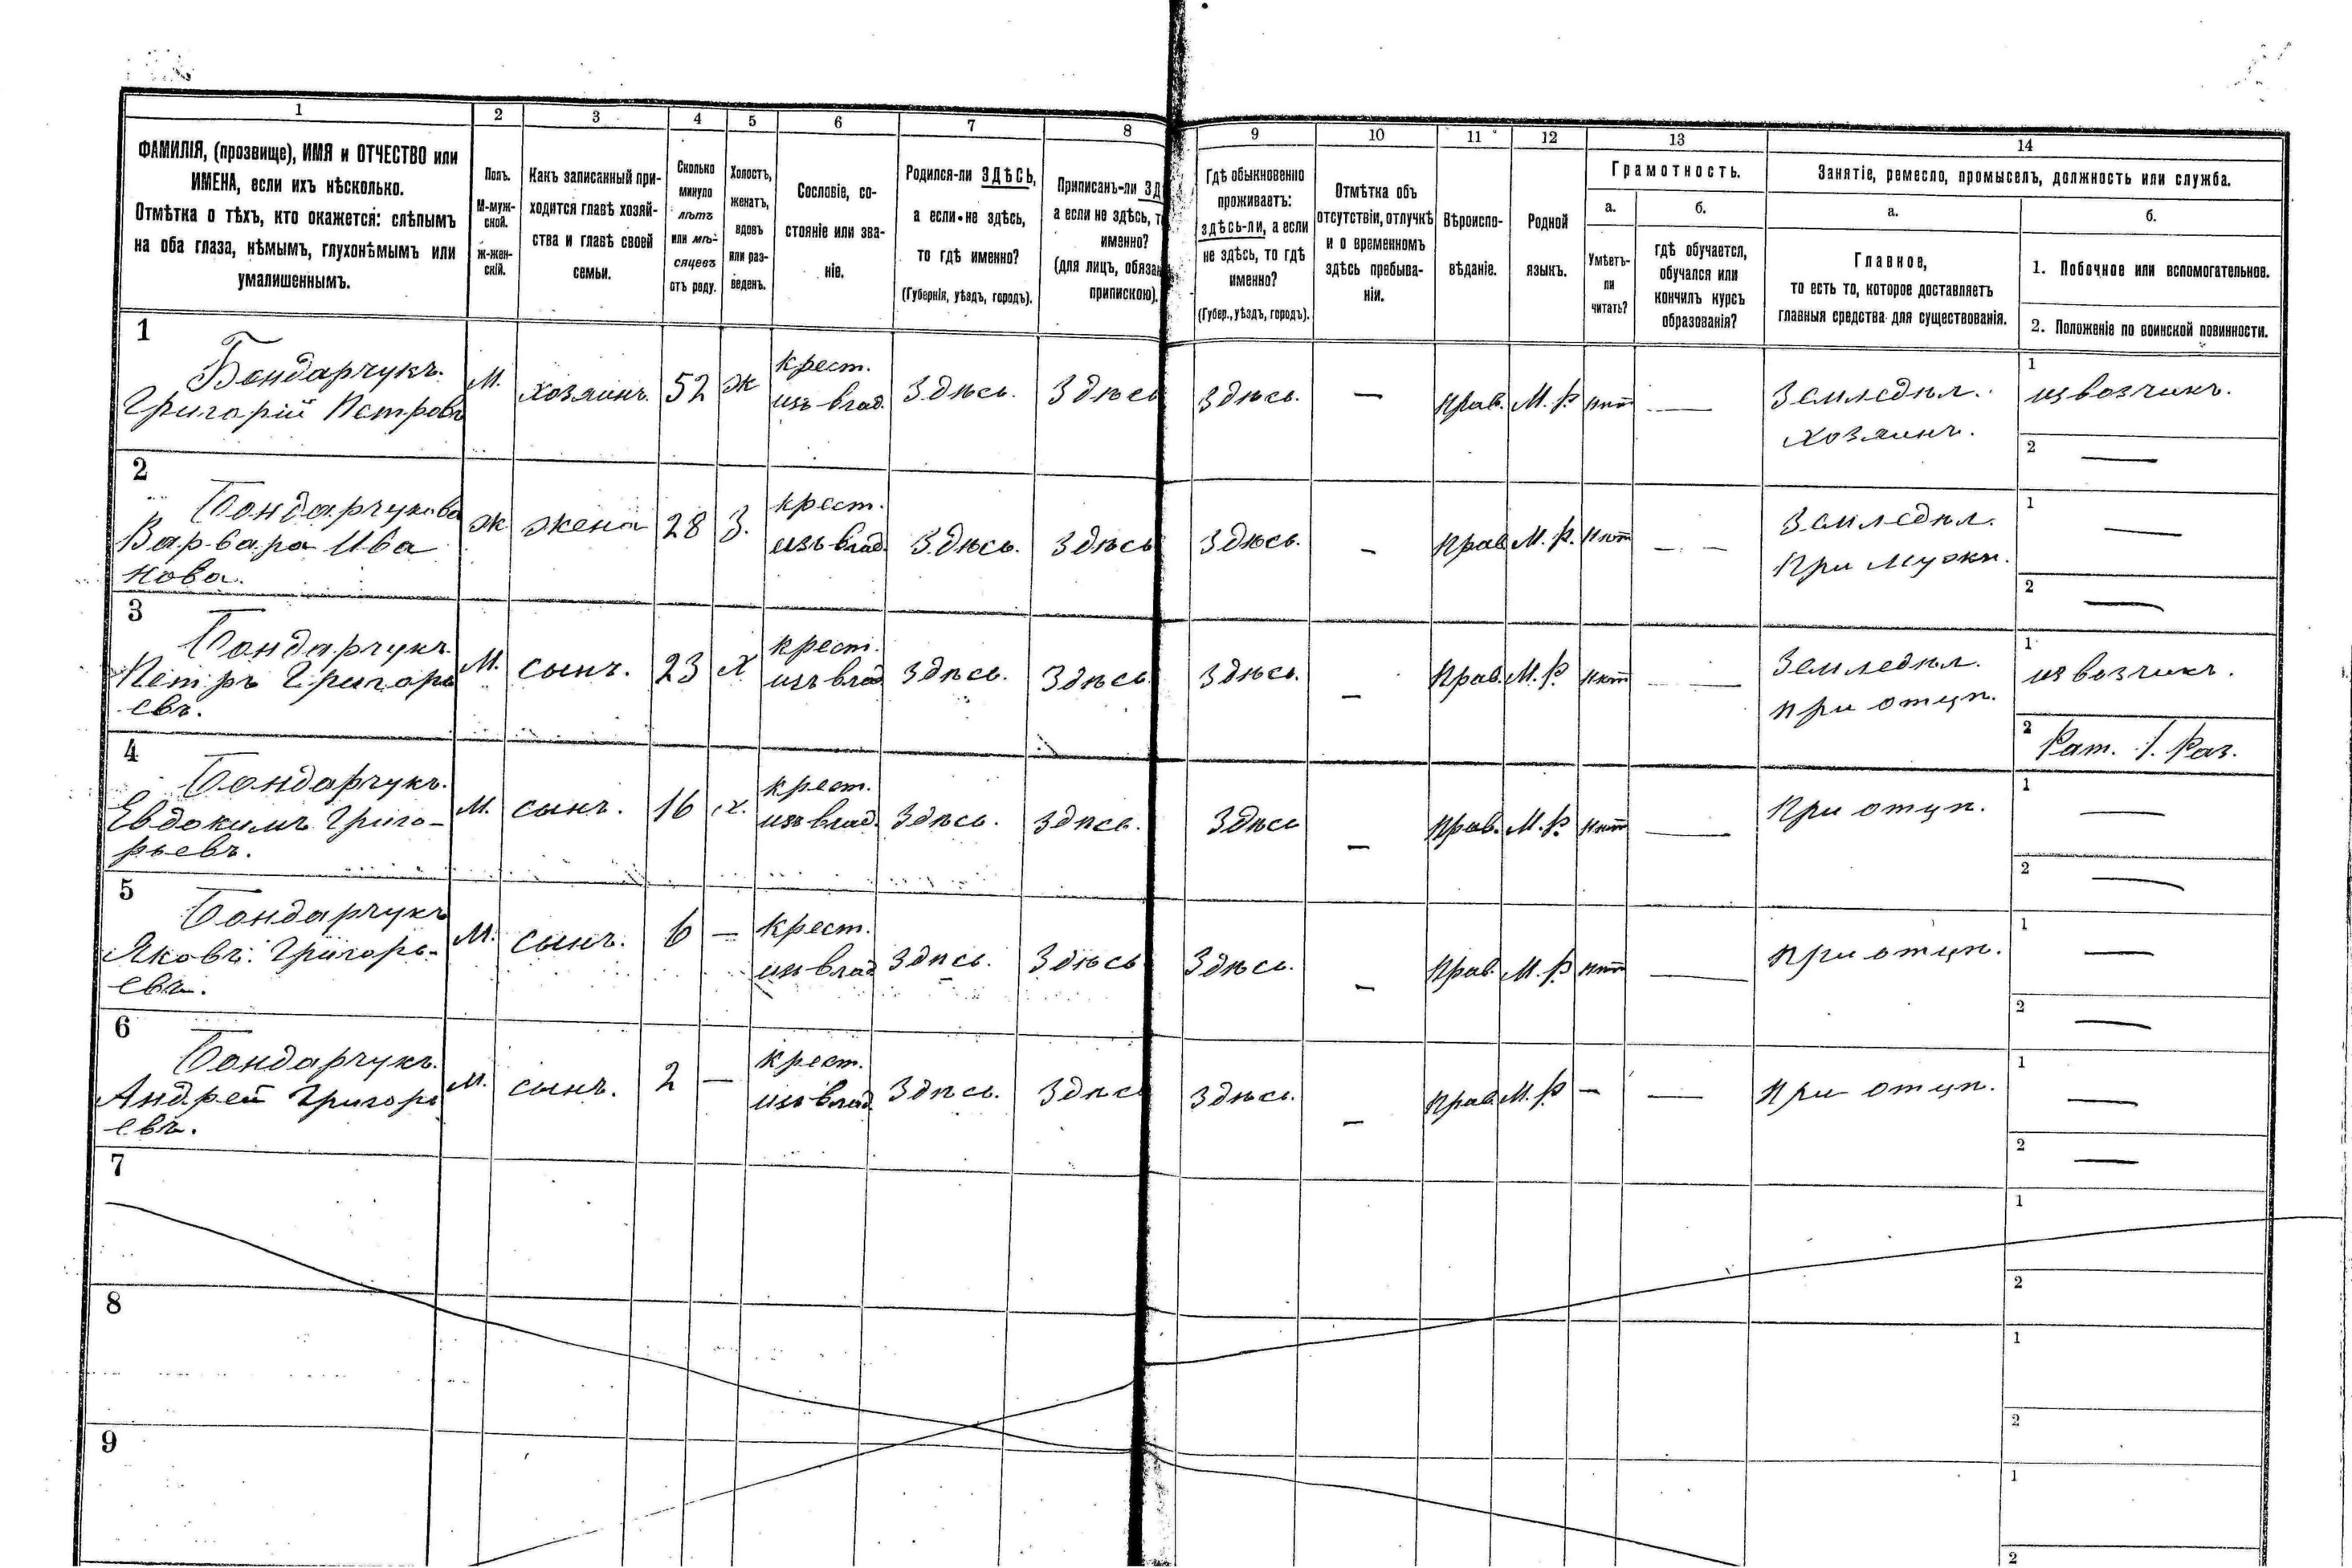 1 2 3 4 5 6 7 8 9 10 11 12 13 14
ФАМИЛІЯ, (прозвище), ИМЯ и ОТЧЕСТВО или
ИМЕНА, если ихъ нѣсколько.
Отмѣтка о тѣхъ, кто окажется: слѣпымъ
на оба глаза, нѣмымъ, глухонѣмымъ или
умалишеннымъ.
Полъ.
М-муж-
ской.
ж-жен-
скій.
Какъ записанный при-
ходится главѣ хозяй-
ства и главѣ своей
семьи.
Сколько
минуло
лѣтъ
или мѣ-
сяцевъ
отъ роду.
Холостъ,
женатъ,
вдовъ
или раз-
веденъ.
Сословіе, со-
стояніе или зва-
ніе.
Родился-ли ЗДѢСЬ,
а если не здѣсь,
то гдѣ именно?
(Губернія, уѣздъ, городъ).
Приписанъ-ли ЗД
а если не здѣсь, т
именно?
(для лицъ, обяза
припискою).
Гдѣ обыкновенно
проживаетъ:
здѣсь-ли, а если
не здѣсь, то гдѣ
именно?
(Губер., уѣздъ, городъ).
Отмѣтка объ
отсутствіи, отлучкѣ
и о временномъ
здѣсь пребыва-
ніи.
Вѣроиспо-
вѣданіе.
Родной
языкъ.
Грамотность.
а.
Умѣетъ-
ли
читать?
б.
гдѣ обучается,
обучался или
кончилъ курсъ
образованія?
Занятіе, ремесло, промыселъ, должность или служба.
а.
Главное,
то есть то, которое доставляетъ
главныя средства для существованія.
б.
1. Побочное или вспомогательное.
2. Положеніе по воинской повинности.
1
Бондарчукъ.
Григорій Петровъ
М.
хозяинъ.
52
ж
крест.
изъ влад.
Здѣсь.
Здѣсь
Здѣсь.
—
Прав.
М. Р.
нѣт
—
Земледѣл.
хозяинъ.
1
извозчикъ.
2
—
2
Бондарчукова
Варвара Ива
нова.
ж
жена
28
З.
крест.
изъ влад.
Здѣсь.
Здѣсь
Здѣсь.
—
Прав
М. Р.
нѣт
—
Земледѣл.
При мужѣ.
1
—
2
—
3
Бондарчукъ
Петръ Григорь
евъ.
М.
сынъ.
23
х
крест.
изъ влад
Здѣсь.
Здѣсь.
Здѣсь.
—
Прав.
М. Р.
нѣт
—
Земледѣл.
при отцѣ.
1
извозчикъ.
2
Рат. 1. Раз.
4
Бондарчукъ.
Евдокимъ Григо-
рьевъ.
М.
сынъ.
16
х.
крест.
изъ влад.
Здѣсь.
Здѣсь.
Здѣсь
—
Прав.
М. Р.
нѣт
—
При отцѣ.
1
—
2
—
5
Бондарчукъ
Яковъ Григорь-
евъ.
М.
сынъ.
6
—
Крест.
изъ влад
Здѣсь.
Здѣсь
Здѣсь.
—
Прав.
М. Р
нѣт
—
При отцѣ.
1
—
2
—
6
Бондарчукъ.
Андрей Григорь
евъ.
М.
сынъ.
2
—
крест.
изъ влад.
Здѣсь.
Здѣсь
Здѣсь.
—
Прав.
М. Р
—
—
При отцѣ.
1
—
2
—
7
1
2
8
1
2
9
1
2